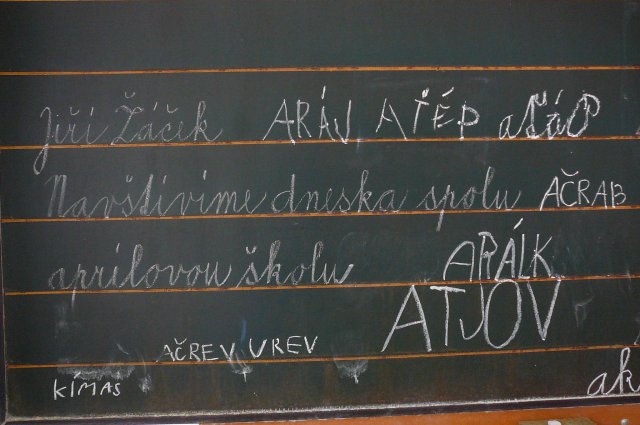 Jiří Žáček ARÁJ AŤÉP aťáP
Navštivíme dneska spolu AČRAB
aprílovou školu ARÁLK
ATJOV
AČREV UREV
KÍMAŠ ak